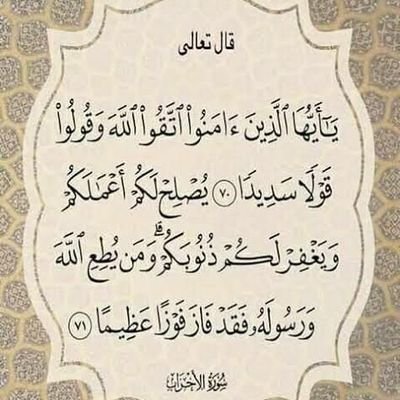 قال تعالى
يَـٰٓأَيُّهَا ٱلَّذِينَ ءَامَنُوا۟ ٱتَّقُوا۟ ٱللَّهَ وَقُولُوا۟
قَوْلًا سَدِيدًا ٧٠ يُصْلِحْ لَكُمْ أَعْمَـٰلَكُمْ
وَيَغْفِرْ لَكُمْ ذُنُوبَكُمْ ۗ وَمَن يُطِعِ ٱللَّهَ
وَرَسُولَهُۥ فَقَدْ فَازَ فَوْزًا عَظِيمًا ٧١
سُورَةُ الأَحْزَابِ